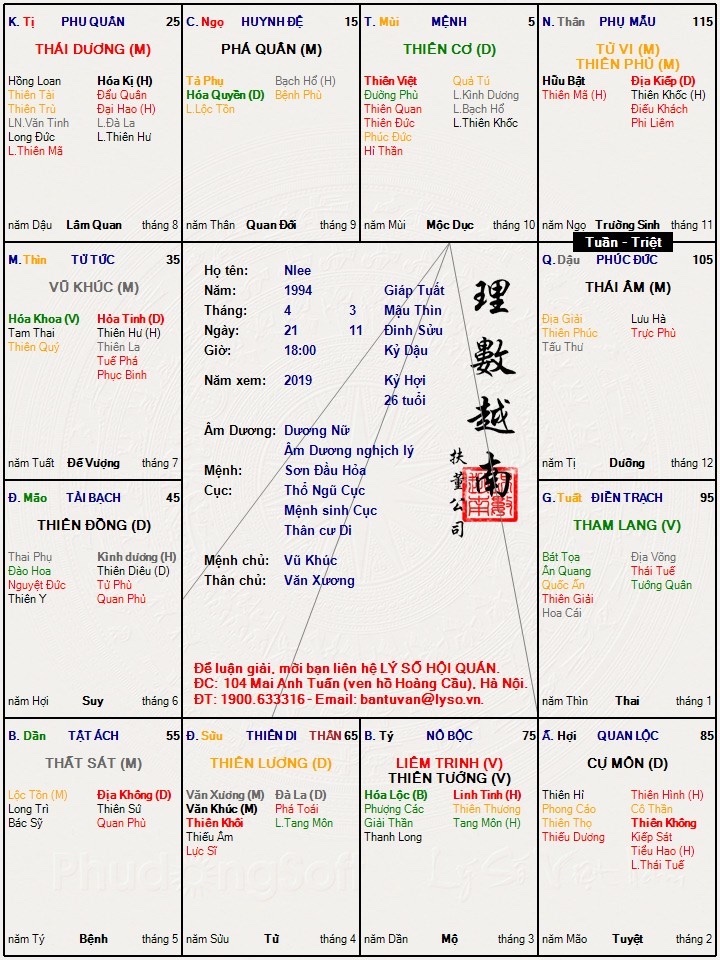 K. Tị PHU QUÂN 25
THÁI DƯƠNG (M)
Hồng Loan Hóa Kị (H)
Thiên Tài Đẩu Quân
Thiên Trù Đại Hao (H)
LN.Văn Tinh L.Đà La
Long Đức L.Thiên Hư
L.Thiên Mã
năm Dậu Lâm Quan tháng 8
C. Ngọ HUYNH ĐỆ 15
PHÁ QUÂN (M)
Tả Phụ Bạch Hổ (H)
Hóa Quyền (D) Bệnh Phù
L.Lộc Tồn
năm Thân Quan Đới tháng 9
T. Mùi MỆNH 5
THIÊN CƠ (D)
Thiên Việt Quả Tú
Đường Phù L.Kình Dương
Thiên Quan L.Bạch Hổ
Thiên Đức L.Thiên Khốc
Phúc Đức
Hỉ Thần
năm Mùi Mộc Dục tháng 10
N. Thân PHỤ MẪU 115
TỬ VI (M)
THIÊN PHỦ (M)
Hữu Bật Địa Kiếp (D)
Thiên Mã (H) Thiên Khốc (H)
Điếu Khách
Phi Liêm
năm Ngọ Trường Sinh tháng 11
Tuần - Triệt
M. Thìn TỬ TỨC 35
VŨ KHÚC (M)
Hóa Khoa (V) Hỏa Tinh (D)
Tam Thai Thiên Hư (H)
Thiên Quý Thiên La
Tuế Phá
Phục Binh
năm Tuất Đế Vượng tháng 7
Họ tên: Nlee
Năm: 1994 Giáp Tuất
Tháng: 4 3 Mậu Thìn
Ngày: 21 11 Đinh Sửu
Giờ: 18:00 Kỷ Dậu
Năm xem: 2019 Kỷ Hợi
26 tuổi
Âm Dương: Dương Nữ
Âm Dương nghịch lý
Mệnh: Sơn Đầu Hỏa
Cục: Thổ Ngũ Cục
Mệnh sinh Cục
Thân cư Di
Mệnh chủ: Vũ Khúc
Thân chủ: Văn Xương
理數越南
扶董公司
Để luận giải, mời bạn liên hệ LÝ SỐ HỘI QUÁN.
ĐC: 104 Mai Anh Tuấn (ven hồ Hoàng Cầu), Hà Nội.
ĐT: 1900.633316 - Email: bantuvan@lyso.vn.
Q. Dậu PHÚC ĐỨC 105
THÁI ÂM (M)
Địa Giải Lưu Hà
Thiên Phúc Trực Phù
Tấu Thư
năm Tị Dưỡng tháng 12
Đ. Mão TÀI BẠCH 45
THIÊN ĐỒNG (D)
Thai Phụ Kình dương (H)
Đào Hoa Thiên Diêu (D)
Nguyệt Đức Tử Phù
Thiên Y Quan Phủ
năm Hợi Suy tháng 6
G. Tuất ĐIỀN TRẠCH 95
THAM LANG (V)
Bát Tọa Địa Võng
Ân Quang Thái Tuế
Quốc Ấn Tướng Quân
Thiên Giải
Hoa Cái
năm Thìn Thai tháng 1
B. Dần TẬT ÁCH 55
THẤT SÁT (M)
Lộc Tồn (M) Địa Không (D)
Long Trì Thiên Sứ
Bác Sỹ Quan Phù
năm Tý Bệnh tháng 5
Đ. Sửu THIÊN DI THÂN 65
THIÊN LƯƠNG (D)
Văn Xương (M) Đà La (D)
Văn Khúc (M) Phá Toái
Thiên Khôi L.Tang Môn
Thiếu Âm
Lực Sĩ
năm Sửu Tử tháng 4
B. Tý NÔ BỘC 75
LIÊM TRINH (V)
THIÊN TƯỚNG (V)
Hóa Lộc (B) Linh Tinh (H)
Phượng Các Thiên Thương
Giải Thần Tang Môn (H)
Thanh Long
năm Dần Mộ tháng 3
Ấ. Hợi QUAN LỘC 85
CỰ MÔN (D)
Thiên Hỉ Thiên Hình (H)
Phong Cáo Cô Thần
Thiên Thọ Thiên Không
Thiếu Dương Kiếp Sát
Tiểu Hao (H)
L.Thái Tuế
năm Mão Tuyệt tháng 2